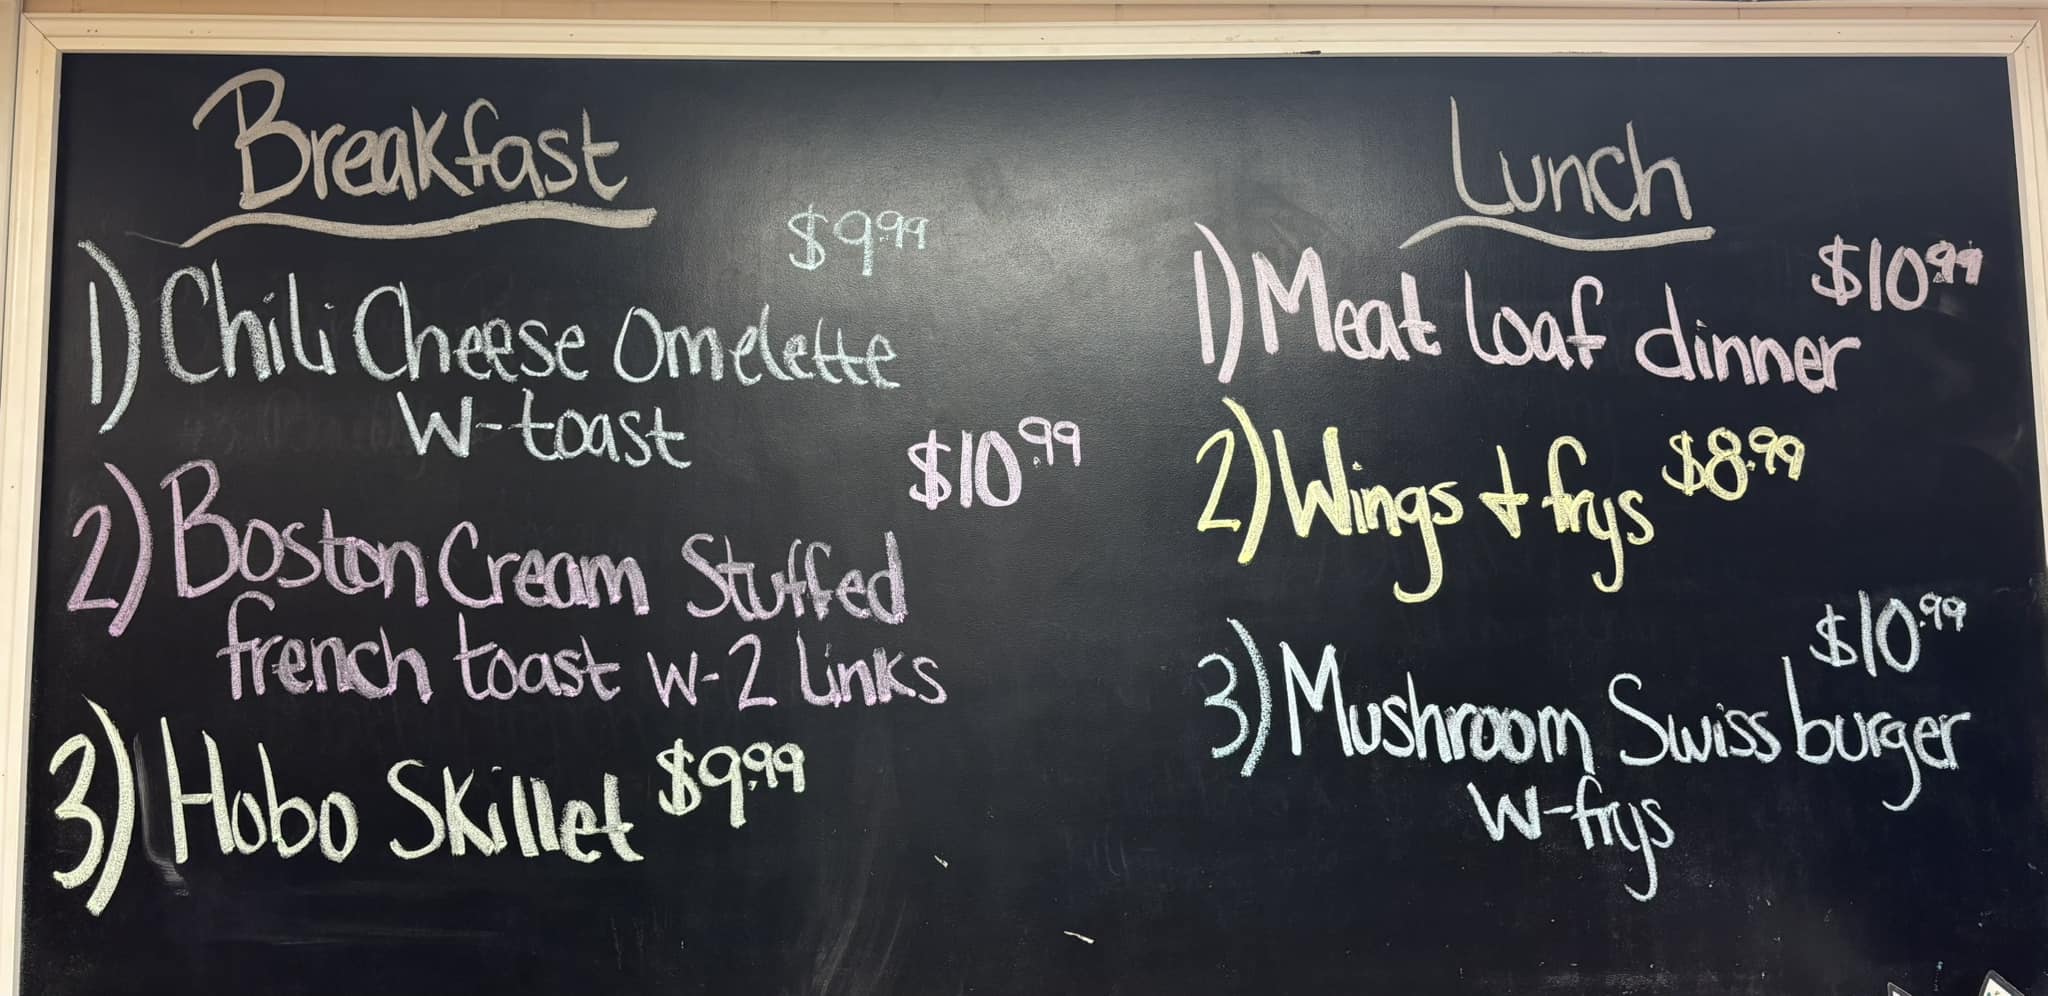 Breakfast
$9.99
1) Chili Cheese Omelette
W-toast
$10.99
2) Boston Cream Stuffed
french toast w-2 Links
3) Hobo Skillet $9.99
Lunch
$10.99
1) Meat loaf dinner
2) Wings + frys $8.99
$10.99
3) Mushroom Swiss burger
W-frys